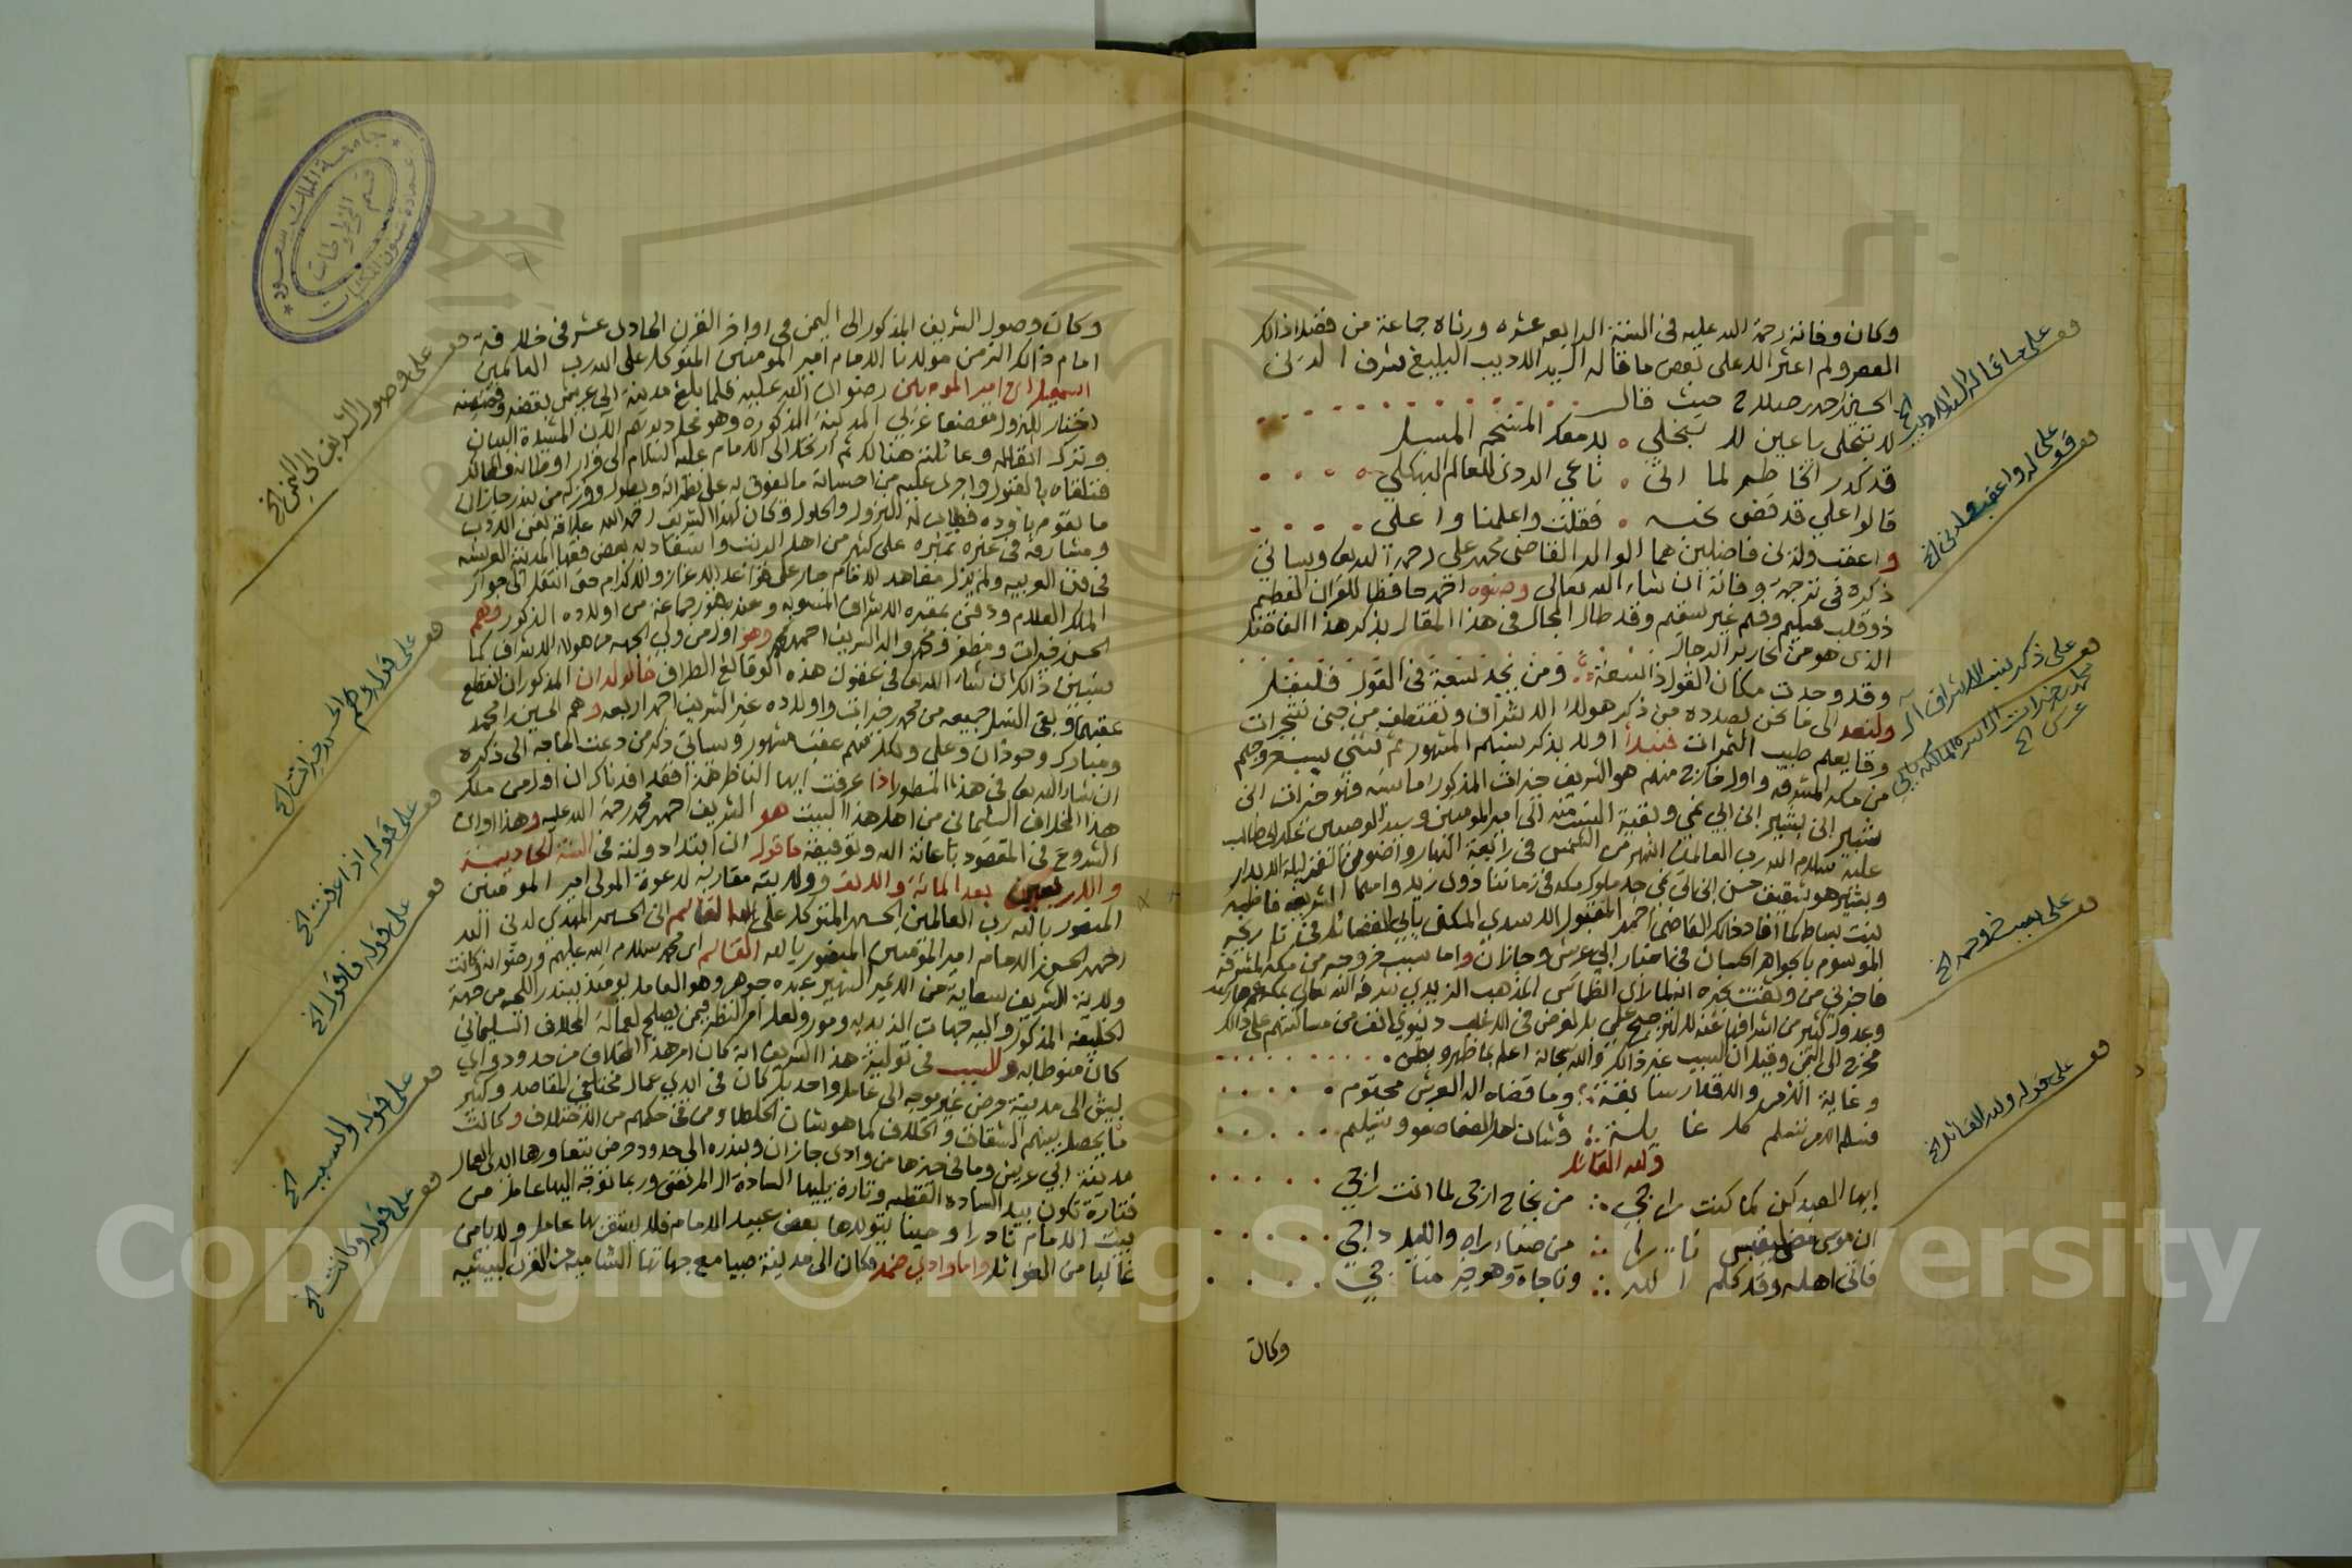 وكان وفاته رحمة الله عليه في السنة الرابعة عشره ورثاه جماعة من فضلاء ذالك
العصر ولم اعثر الا على بعض ما قاله السيد الاديب البليغ شرف الدين
الحسين احمد صلاح حيث قال
لا تبخلي يا عين لا تبخلي ٥ بدمعك المنسجم المسبل
قد كدر الخاطر لما اتى ٥ ناعي الردى للعالم البهكلي
قالوا علي قد قضى نحبه ٥ فقلت واعلمنا واعلي
واعقب ولدين فاضلين هما الوالد القاضي محمد علي رحمة الله وسياتي
ذكره في ترجمة وفاته ان شاء الله تعالى وصنوه احمد حافظا للقران العظيم
ذو قلب سليم وفهم غير سقيم وقد طال المجال في هذا المقال بذكر هذا الفاضل
الذي هو من اكابر الرجال
وقد وجدت مكان القول ذا سعة ومن يجد سعة في القول فليقل
ولنعد الى ما نحن بصدده من ذكر هولاء الاشراف ونقتطف من جنى شجرات
وقايعهم طيب الثمرات فنبدأ اولا بذكر بيتهم المشهور ثم نثني بسبب خروجهم
من مكة المشرفه واول خارج منهم هو الشريف خيرات المذكور اما نسبه فهو خيرات ابن
شبير ابن بشير ابن ابي نمي وبقية النسب منه الى امير المومنين وسيد الوصيين علي بن ابي طالب
عليه سلام الله رب العالمين اشهر من الشمس في رابعة النهار واضو من القمر ليلة الابدار
وبشير هو شقيق حسن ابن ابي نمي جد ملوك مكه في زماننا ذوي زيد وامهما الشريفه فاطمه
بنت بساط كما افاد ذالك القاضي احمد المقبول الاسدي المكنى بابي الفضائل في تاريخه
الموسوم بالجواهر الحسان في اخبار ابي عريش وجازان واما سبب خروجه من مكة المشرفة
فاخبرني من وثقت بخبره انه لما راى انطماس المذهب الزيدي شرفها الله تعالى
وعدول كثير من اشرافها عنه لا لترجيح علمي بل لغرض في الاغلب دنيوي انف من مساكنتهم على ذالك
فخرج الى اليمن وقيل ان السبب غير ذالك والله سبحانه اعلم بما ظهر وبطن
وغاية الامر والاقدار سابقة وما قضاه اله العرش محتوم
فسلم الامر تسلم كل غايلة وشان اهل الصفا صفو وتسليم
ولله القائل
ايها العبد كن لما كنت راجي من نجاح ارجى لما انت راجي
ان موسى مضى يقبس نارا من ضياء راه والليل داجي
فاتى اهله وقد كلم الله وناجاه وهو خير مناجي
وكان
قف على ما قاله السيد الاديب الخ
قف على قوله واعقب ولدين الخ
قف على ذكر بيت الاشراف
قف على سبب خروجه الخ
قف على قوله ولله القائل الخ
وكان وصول الشريف المذكور الى اليمن في اواخر القرن الحادي عشر في خلافة
امام ذالك الزمن مولانا الامام امير المومنين المتوكل على الله رب العالمين
اسمعيل ابن امير المومنين رضوان الله عليه فلما بلغ مدينة ابي عريش
اختار للنزول موضعا غربي المدينة المذكوره وهو محل ديارهم الان المشيدة البنيان
وترك اثقاله وعائلته هنالك ثم ارتحل الى الامام عليه السلام الى
فتلقاه بالقبول واجرى عليه من احسانه ما يفوق به على نظرائه ويطول وقرر له من بندر جازان
ما يقوم باوده فطاب له النزول والحلول وكان لهذا الشريف رحمه الله علاقة بفن الادب
ومشاركة في غيره تميزه على كثير من اهل الرتب واستفاد به بعض فقهاء المدينة العريشيه
في فن العربيه ولم يزل مقامه حتى انتقل الى جوار
الملك العلام ودفن بمقبرة الاشراف المنسوبه جماعة من اولاده الذكور وهم
الحسن خيرات ومظفر ومحمد والد الشريف احمد محمد وهو اول من ولي الجهه من هولاء الاشراف كما
سيبين ذالك ان شاء الله تعالى في غضون هذه الوقائع الطراف فالولدان المذكوران انقطع
عقبهما وبقي النسل جميعه من محمد خيرات واولاده غير الشريف احمد اربعه وهم الحسين محمد
ومبارك وحوذان وعلي ولكل منهم عقب مشهور وسياتي ذكر من دعت الحاجه الى ذكره
ان شاء الله تعالى في هذا المسطور اذا عرفت ايها الناظر هذا فقد افدناك ان اول من ملك
هذا المخلاف السليماني من اهل هذا البيت هو الشريف احمد محمد رحمة الله عليه وهذا اوان
الشروع في المقصود باعانة الله وتوفيقه فاقول ان ابتداء دولته في السنة الحاديه
والاربعين بعد المائة والالف وولايته مقاربه لدعوة المولى امير المومنين
المنصور بالله رب العالمين الحسين المتوكل على الله القاسم ابن الحسين المهدي لدين الله
احمد الحسن الامام امير المومنين المنصور بالله القاسم ابن محمد سلام الله عليهم ورضوانه وكانت
ولاية الشريف بسعاية من الامير الشهير عبده جوهر وهو العامل يومئذ ببندر اللحيه من جهة
الخليفه المذكور واليه جهات الزيديه ومور ولعل امر النظر فيمن يصلح لعمالة المخلاف السليماني
كان منوطا به والسبب في تولية هذا الشريف انه كان امر هذا المخلاف من حدود وادي
بيش الى مدينة حرض غير موجه الى عامل واحد بل كان في ايدي عمال مختلفي المقاصد وكثير
ما يحصل بينهم الشقاق والخلاف كما هو شان الخلطا ومن في حكمهم من الاختلاف وكانت
مدينة ابي عريش وما في حيزها من وادي جازان وبندره الى حدود حرض تتعاورها ايدي العمال
فتارة تكون بيد الساده القطبه وتارة يليها السادة ال المرتضى وربما توجه اليها عامل من
بيت الامام نادرا وحينا يتولاها بعض عبيد الامام فلا يستقر بها عامل ولا يامن
غالبا من الغوائل واما وادي ضمد فكان الى مدينة صبيا مع جهاتها الشاميه
قف على وصول الشريف الى اليمن الخ
قف على قوله وهم الحسن خيرات الخ
قف على قوله اذا عرفت الخ
قف على قوله فاقول الخ
قف على قوله والسبب الخ
قف على قوله وكانت الخ
جامعة الملك سعود
عمادة شئون المكتبات
قسم المخطوطات
Copyright © King Saud University
1957